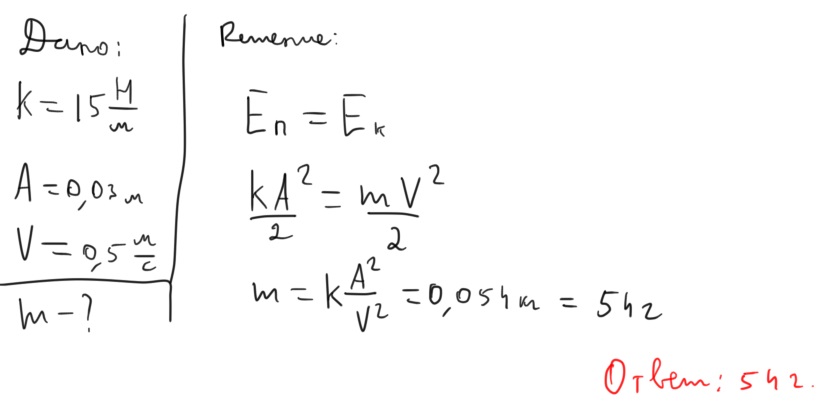 Дано:
k = 15 Н/м
A = 0,03 м
V = 0,5 м/с
m - ?
Решение:
Eп = Eк
kA²/2 = mV²/2
m = k A²/V² = 0,054 кг = 54 г
Ответ: 54 г.